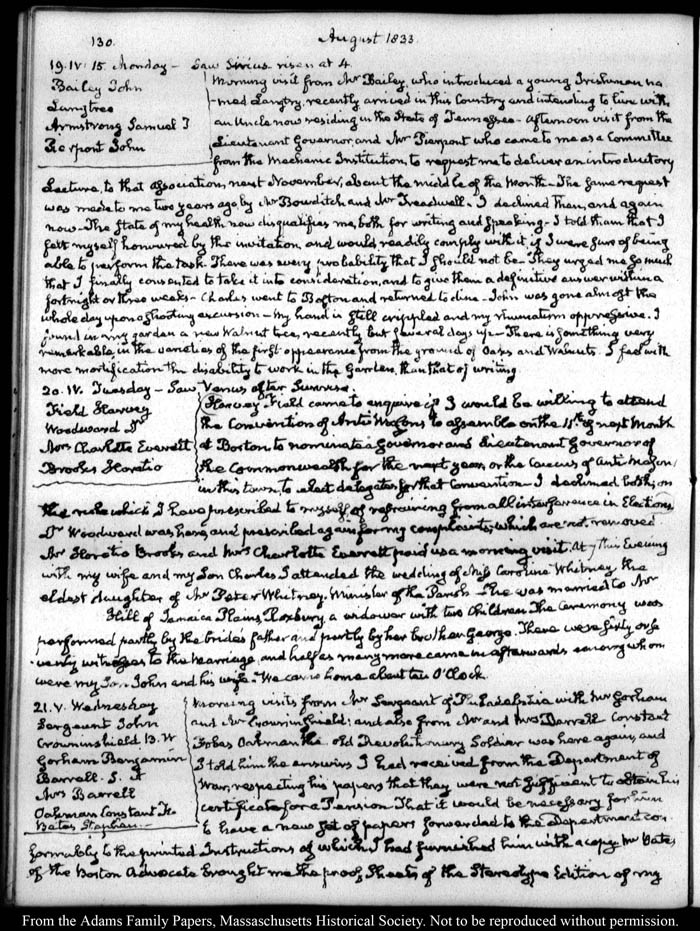 130.
August 1833.
19. IV: 15. Monday – Saw Sirius risen at 4.
Bailey John
Langtree
Armstrong Samuel T
Pierpont John
Morning visit from Mr Bailey, who introduced a young Irishman na
-med Langtry, recently arrived in this Country and intending to live with
an Uncle now residing in the State of Tennessee – Afternoon visit from the
Lieutenant Governor, and Mr Pierpont who came to me as a Committee
from the Mechanic Institution, to request me to deliver an introductory
Lecture, to that association, next November, about the middle of the Month – The same request
was made to me two years ago, by Mr Bowditch and Mr Treadwell – I declined then, and again
now – The State of my health now disqualifies me, both for writing and speaking – I told them that I
felt myself honoured by the invitation, and would readily comply with it, if I were sure of being
able to perform the task. There was every probability that I should not be – They urged me so much
that I finally consented to take it into consideration, and to give them a definitive answer within a
fortnight or three weeks – Charles went to Boston and returned to dine – John was gone almost the
whole day upon a shooting excursion – My hand is still crippled and my rheumatism oppressive. I
found in my garden a new Walnut tree, recently but several days up – There is something very
remarkable in the varieties of the first appearance from the ground of Oaks and Walnuts. I feel with
more mortification the disability to work in the Garden, than that of writing.
20. IV. Tuesday – Saw Venus after Sunrise.
Field Harvey
Woodward Dr
Mrs Charlotte Everett
Brooks Horatio
Harvey Field came to enquire if I would be willing to attend
the Convention of Anti Masons to assemble on the 11th of next Month
at Boston, to nominate a Governor and Lieutenant Governor of
the Commonwealth for the next year, or the Caucus of Anti Masons
in this town, to elect delegates for that Convention – I declined both; on
the rule which I have prescribed to myself of refraining from all interference in Elections
Dr Woodward was here, and prescribed again for my complaints, which are not removed
Mr Horatio Brooks and Mrs Charlotte Everett paid us a morning visit. This Evening
with my wife and my Son Charles I attended the wedding of Miss Caroline Whitney, the
eldest daughter of Mr Peter Whitney, Minister of the Parish – She was married to Mr
Hill of Jamaica Plains, Roxbury a widower with two Children. The Ceremony was
performed partly by the bride's father and partly by her brother George. There were sixty or se
-venty witnesses to the marriage, and half as many more came in afterwards among whom
were my Son John and his wife. We came home about ten O'Clock.
21. V. Wednesday
Sergeant John
Crowninshield B. W
Gorham Benjamin
Barrell. S. A
Mrs Barrell
Oakman Constant F.
Bates Stephen
Morning visits from Mr Sergeant of Philadelphia with Mr Gorham
and Mr Crowninshield; and also from Mr and Mrs Barrell Constant
Fobes Oakman the old Revolutionary Soldier was here again, and
I told him the answers I had received from the Department of
War, respecting his papers that they were not sufficient to obtain his
certificate for a Pension. That it would be necessary for him
to have a new set of papers forwarded to the Department con
formably to the printed Instructions of which I had furnished him with a copy. Mr Bates
of the Boston Advocate brought me the proof, Sheets of the Stereotype Edition of my
From the Adams Family Papers, Massachusetts Historical Society. Not to be reproduced without permission.